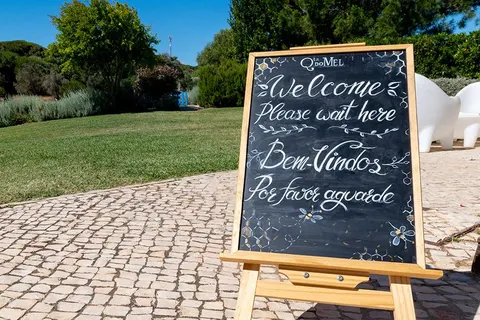 QTA DO MEL
Welcome
Please wait here
Bem-Vindos
Por favor aguarde